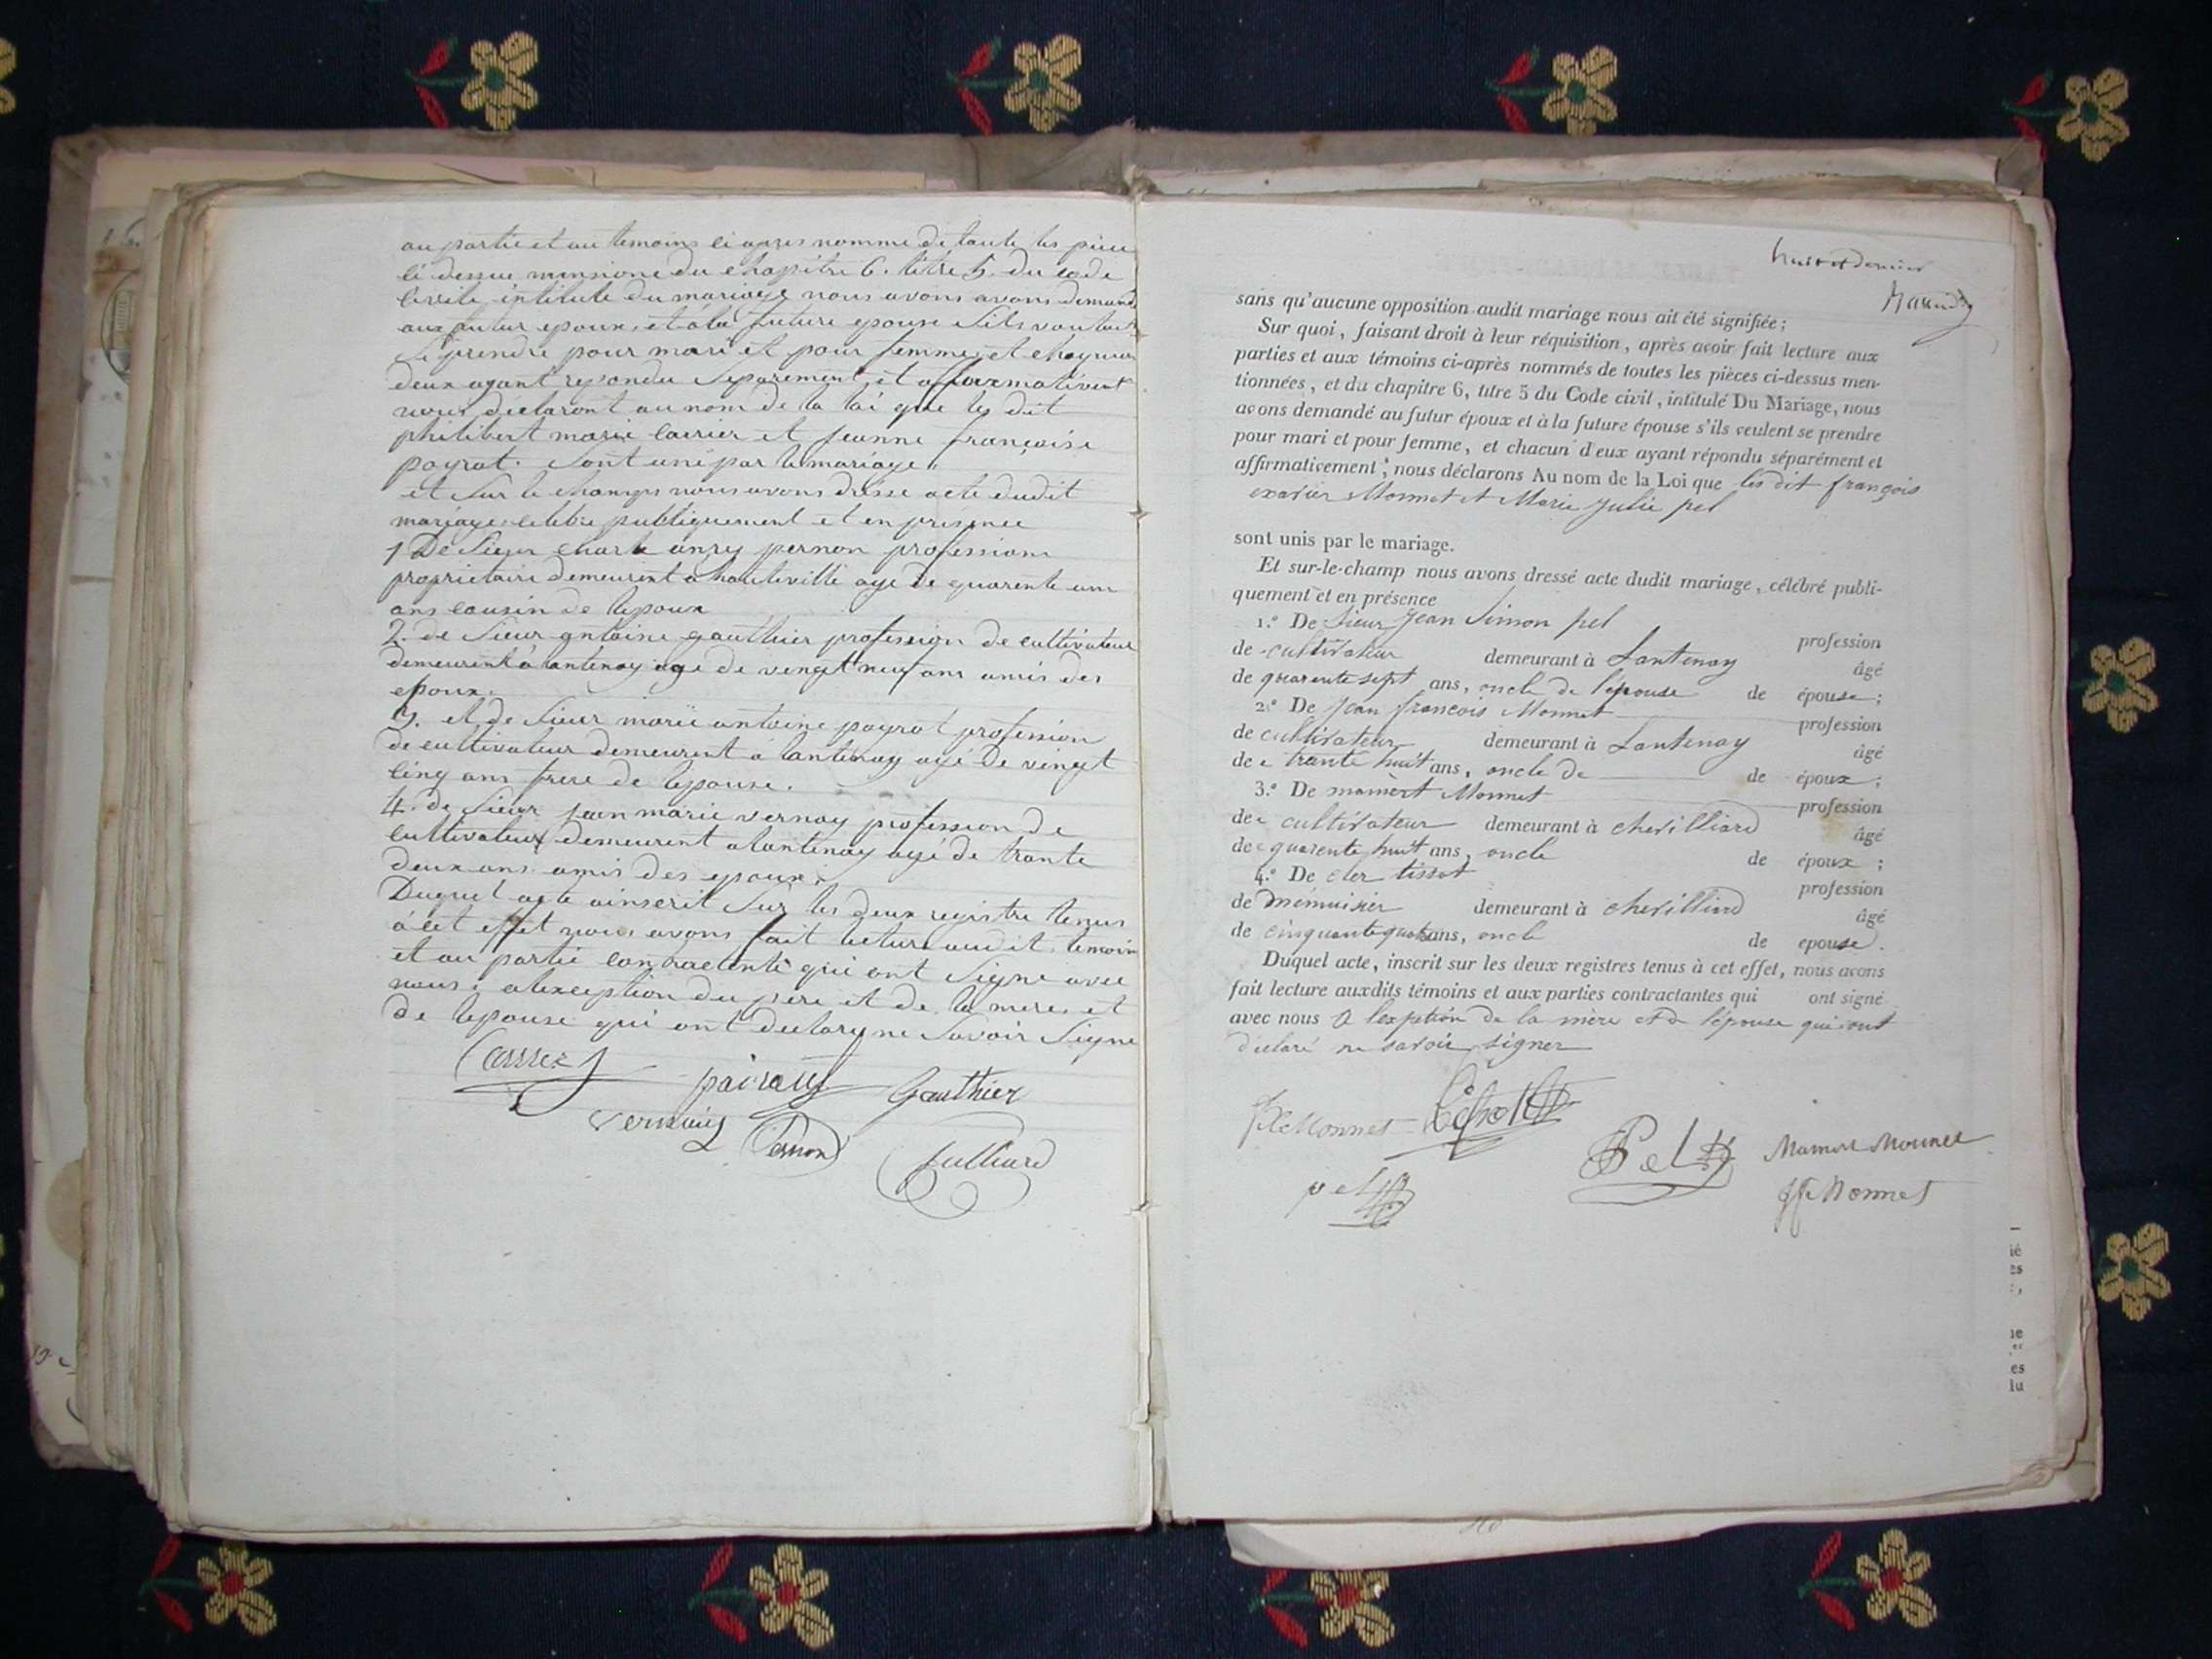 au partie et au temoins ci apres nomme de toute les piece
ci dessue mensione du chapitre 6. titre 5. du code
civile intitule du mariage nous avons avons demande
aux futur epoux et a la future epouse s'ils voulent
se prendre pour mari et pour femme et chaqun
deux ayant repondu separement et affaxmativent
nous déclaront au nom de la loi que les dit
philibert marie carrier et jeanne françoise
payrat. sont uni par le mariage.
et sur le champs nous avons dresse acte dudit
mariage celebre publiquement et en présence
1 De Sieur Charle anry pernon profession
proprietaire demeurent a hauteville age de quarente un
ans cousin de lepoux
2. de Sieur antoine gauthier profession de cultivateur
demeurent a lantenay age de vengt neuf ans amis des
epoux.
3. et de Sieur marie antoine payrat profession
de cultivateur demeurent a lantenay agé de vingt
cinq ans frere de lepouse.
4. de Sieur jean marie vernay profession de
cultivateur demeurent a lantenay agé de trante
deux ans amis des epoux
Duquel acte ainscrit sur les deux registre tenus
á cet effet nous avons fait lecture audit temoin
et au partie contractente qui ont signe avec
nous a lexception du pere et de la mere et
de lepouse qui ont declare ne savoir signe
pairat Gauthier
Pernon
Julliard
huit et dernier
sans qu'aucune opposition audit mariage nous ait été signifiée;
Sur quoi, faisant droit à leur réquisition, après avoir fait lecture aux
parties et aux témoins ci-après nommés de toutes les pièces ci-dessus men-
tionnées, et du chapitre 6, titre 5 du Code civil, intitulé Du Mariage, nous
avons demandé au futur époux et à la future épouse s'ils veulent se prendre
pour mari et pour femme, et chacun d'eux ayant répondu séparément et
affirmativement; nous déclarons Au nom de la Loi que les dit françois
exavier Monnet et Marie Julie pel
sont unis par le mariage.
Et sur-le-champ nous avons dressé acte dudit mariage, célébré publi-
quement et en présence
1.º De Sieur Jean Simon pel profession
de cultivateur demeurant à Lantenay âgé
de quarente sept ans, oncle de l'épouse de épouse;
2.º De Jean françois Monnet profession
de cultivateur demeurant à Lantenay âgé
de trante huit ans, oncle de de époux;
3.º De mamert Monnet profession
de cultivateur demeurant à chevilliard âgé
de quarente huit ans, oncle de époux;
4.º De cler tissot profession
de menuisier demeurant à chevilliard âgé
de cinquante quatre ans, oncle de epouse.
Duquel acte, inscrit sur les deux registres tenus à cet effet, nous avons
fait lecture auxdits témoins et aux parties contractantes qui ont signé
avec nous a l'exption de la mère et de l'épouse qui ont
déclaré ne savoir signer
fX Monnet
Pel Mamert Monnet
pel jf Monnet
ié
es
ne
es
lu